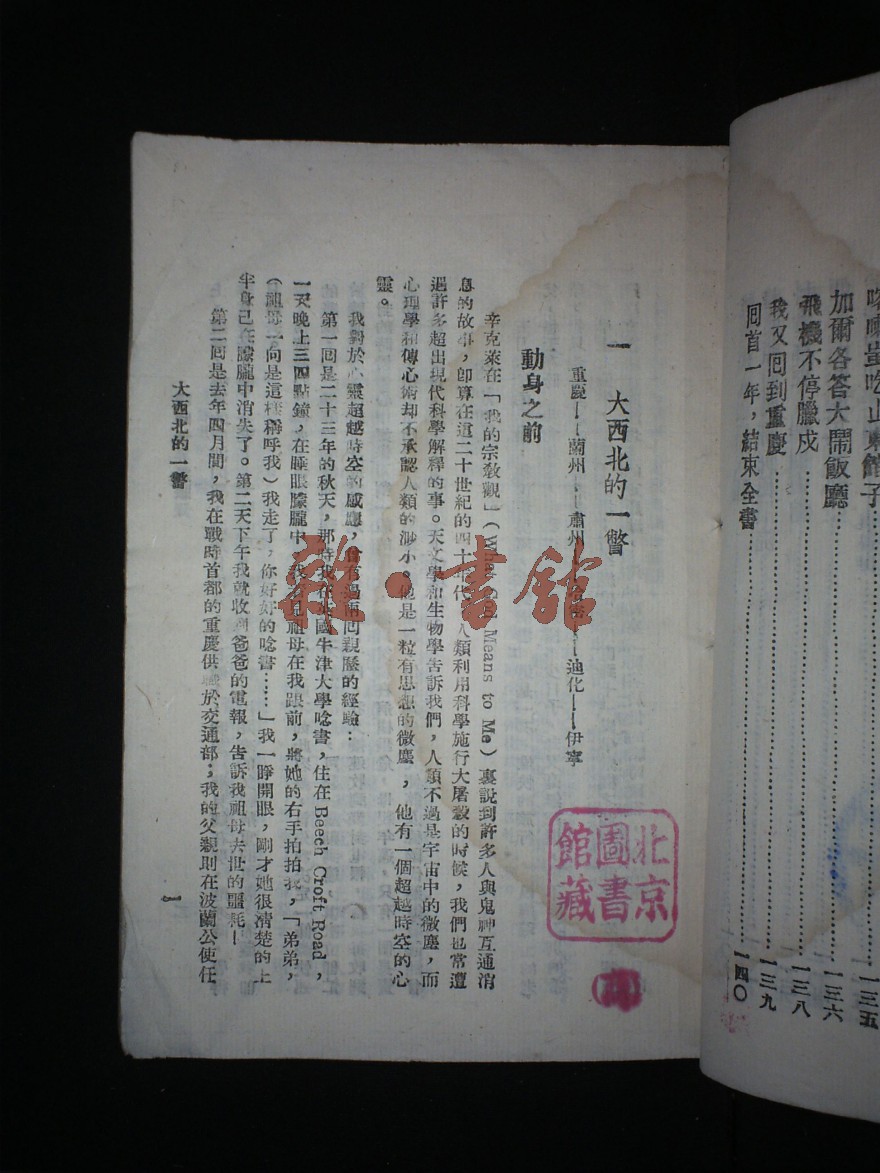 加爾各答大鬧飯廳……一三六
飛機不停臘戍……一三八
我又回到重慶……一三九
回首一年，結束全書……一四〇
一三五
一　大西北的一瞥
重慶——蘭州——肅州——哈密——迪化——伊寧
動身之前
辛克萊在「我的宗敎觀」(What God Means to Me)裏說到許多人與鬼神互通消
息的故事，卽算在這二十世紀的四十年代，人類利用科學施行大屠殺的時候，我們也常遭
遇許多超出現代科學解釋的事。天文學和生物學告訴我們，人類不過是宇宙中的微塵，而
心理學和傳心術却不承認人類的渺小。他是一粒有思想的微塵，他有一個超越時空的心
靈。
我對於心靈超越時空的感應，會有過兩回親歷的經驗：
第一回是二十三年的秋天，那時我在英國牛津大學唸書，住在Beech Croft Road，
一天晚上三四點鐘，在睡眼朦朧中，我看見祖母在我跟前，將她的右手拍拍我，「弟弟，
(祖母一向是這樣稱呼我)我走了，你好好的唸書……」我一睜開眼，剛才她很清楚的上
半身已在朦朧中消失了。第二天下午我就收到爸爸的電報，告訴我祖母去世的噩耗！
第二回是去年四月間，我在戰時首都的重慶供職於交通部；我的父親則在波蘭公使任
大西北的一瞥
一
北京
圖書
館藏
雜·書館